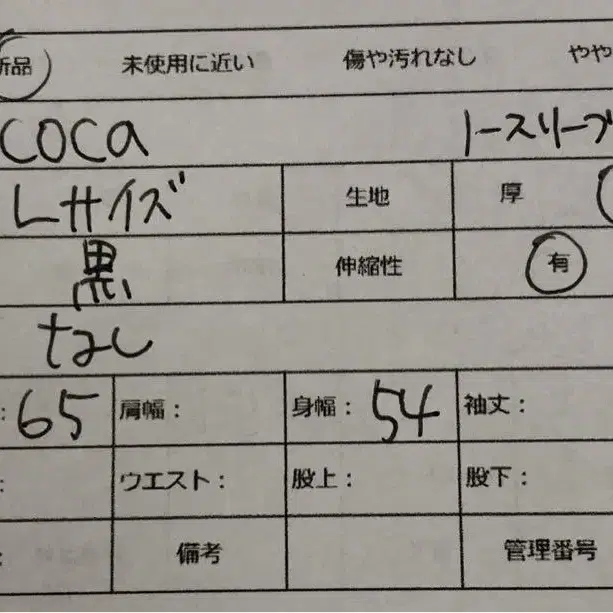 新品 未使用に近い 傷や汚れなし やや
coca ノースリーブ
Lサイズ 生地 厚
黒 伸縮性 有
なし
: 65 肩幅: 身幅: 54 袖丈:
: ウエスト: 股上: 股下:
: 備考 管理番号